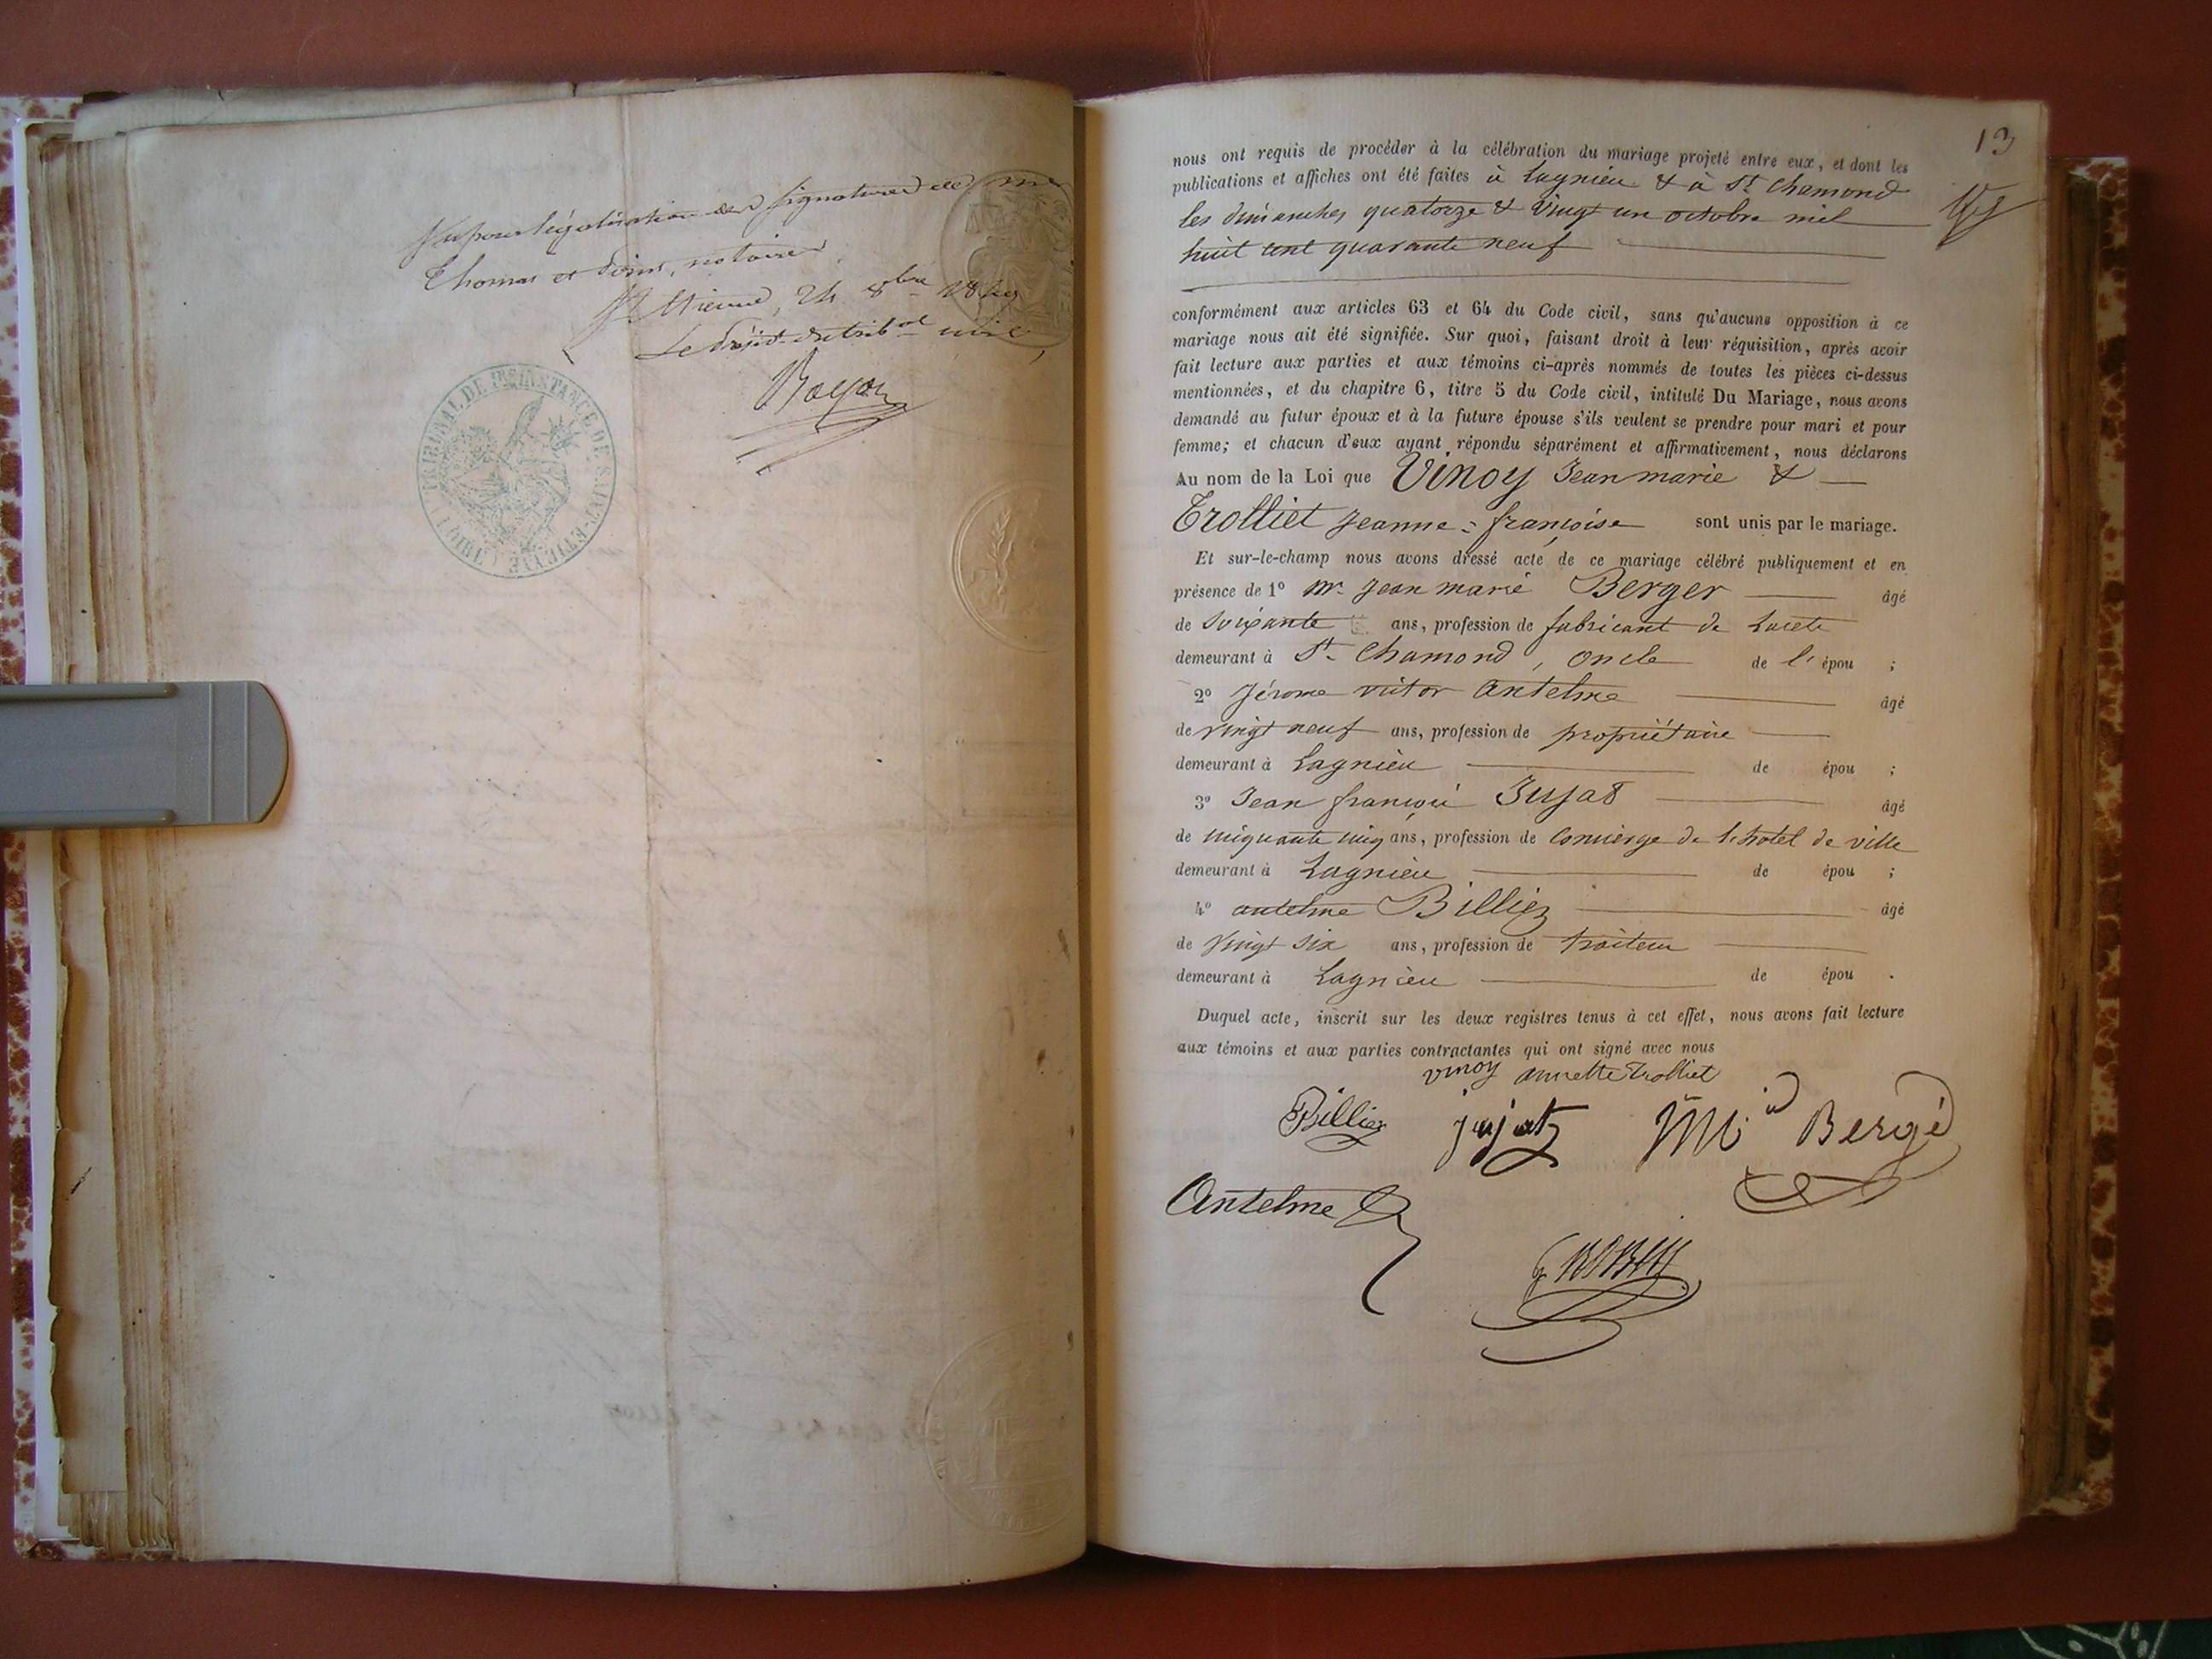 Vu pour légalisation des signatures de Mes
Thomas et        , notaires
St Etienne, 24 8bre 1849
Le Présidt du tribal civil,
TRIBUNAL DE 1RE INSTANCE DE SAINT-ETIENNE (LOIRE)
13
nous ont requis de procéder à la célébration du mariage projeté entre eux, et dont les
publications et affiches ont été faites à Lagnieu & à St Chamond
les dimanches quatorze & vingt un octobre mil
huit cent quarante neuf
conformément aux articles 63 et 64 du Code civil, sans qu'aucune opposition à ce
mariage nous ait été signifiée. Sur quoi, faisant droit à leur réquisition, après avoir
fait lecture aux parties et aux témoins ci-après nommés de toutes les pièces ci-dessus
mentionnées, et du chapitre 6, titre 5 du Code civil, intitulé Du Mariage, nous avons
demandé au futur époux et à la future épouse s'ils veulent se prendre pour mari et pour
femme; et chacun d'eux ayant répondu séparément et affirmativement, nous déclarons
Au nom de la Loi que Vinoy Jean marie &
Trolliet Jeanne=françoise sont unis par le mariage.
Et sur-le-champ nous avons dressé acte de ce mariage célébré publiquement et en
présence de 1º Mr Jean marie Berger âgé
de soixante ans, profession de fabricant de Lacets
demeurant à St Chamond, oncle de l'épou ;
2º Jérome victor Antelme âgé
de vingt neuf ans, profession de propriétaire
demeurant à Lagnieu de épou ;
3º Jean françois Jujat âgé
de cinquante cinq ans, profession de concierge de l'hotel de ville
demeurant à Lagnieu de épou ;
4º antelme Billiez âgé
de vingt six ans, profession de traiteur
demeurant à Lagnieu de épou .
Duquel acte, inscrit sur les deux registres tenus à cet effet, nous avons fait lecture
aux témoins et aux parties contractantes qui ont signé avec nous
vinoy annette Trolliet
Billiez jujat Bergé
Antelme